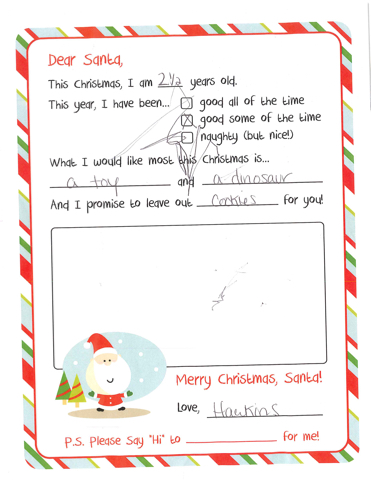 Dear Santa,
This Christmas, I am 2 1/2 years old.
This year, I have been... good all of the time
good some of the time
naughty (but nice!)
What I would like most this Christmas is...
a toy and a dinosaur
And I promise to leave out Cookies for you!
Merry Christmas, Santa!
Love, Hawkins
P.S. Please Say "Hi" to for me!